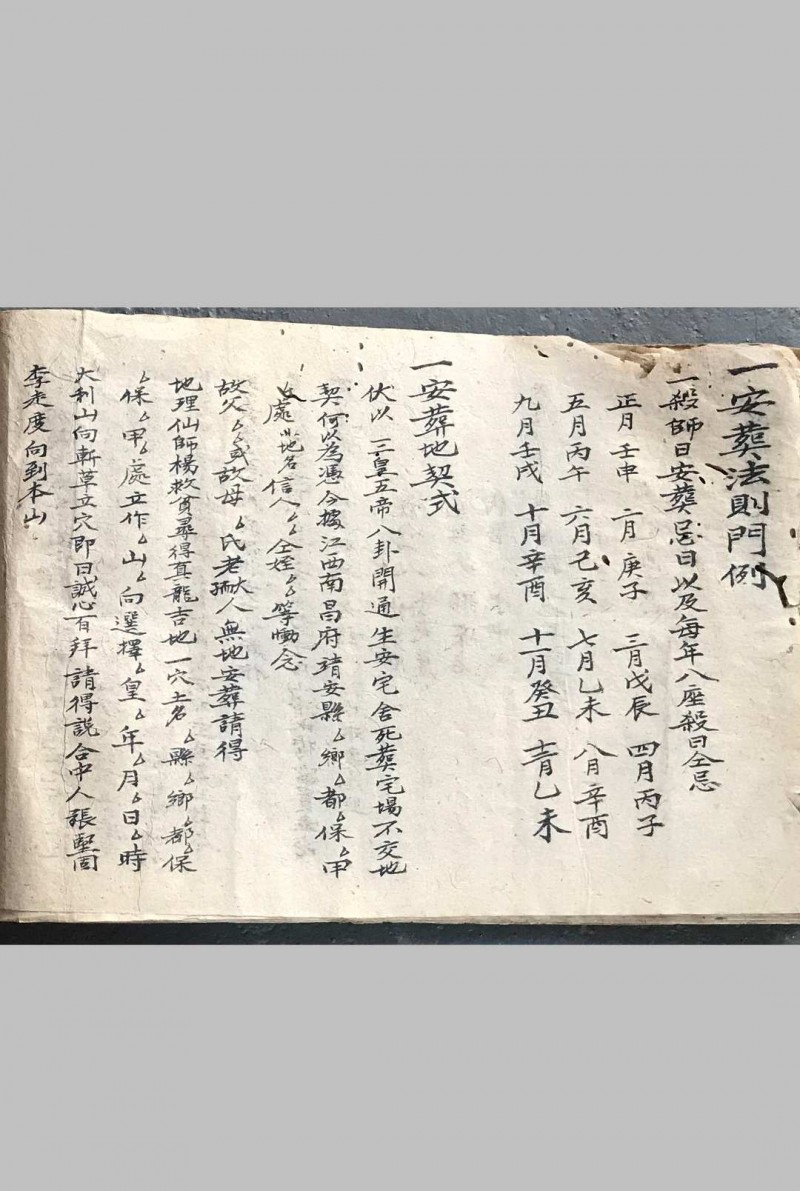 一安葬法則門例
一殺師日安葬忌日以及每年八座殺日仝忌
正月壬申 二月庚子 三月戊辰 四月丙子
五月丙午 六月己亥 七月乙未 八月辛酉
九月壬戌 十月辛酉 十一月癸丑 十二月乙未
一安葬地契式
伏以 三皇五帝八卦開通生安宅舍死葬宅場不交地
契何以為憑今據江西南昌府靖安縣厶鄉厶都厶保厶甲
厶處地名信人厶仝姪厶等慟念
故父厶或故母厶氏老孺人無地安葬請得
地理仙師楊救貧尋得真龍吉地一穴土名厶縣厶鄉厶都厶保
厶保厶甲厶處立作厶山厶向選擇厶皇厶年厶月厶日厶時
大利山向斬草立穴即日誠心百拜 請得説合中人張堅固
李定度向到本山